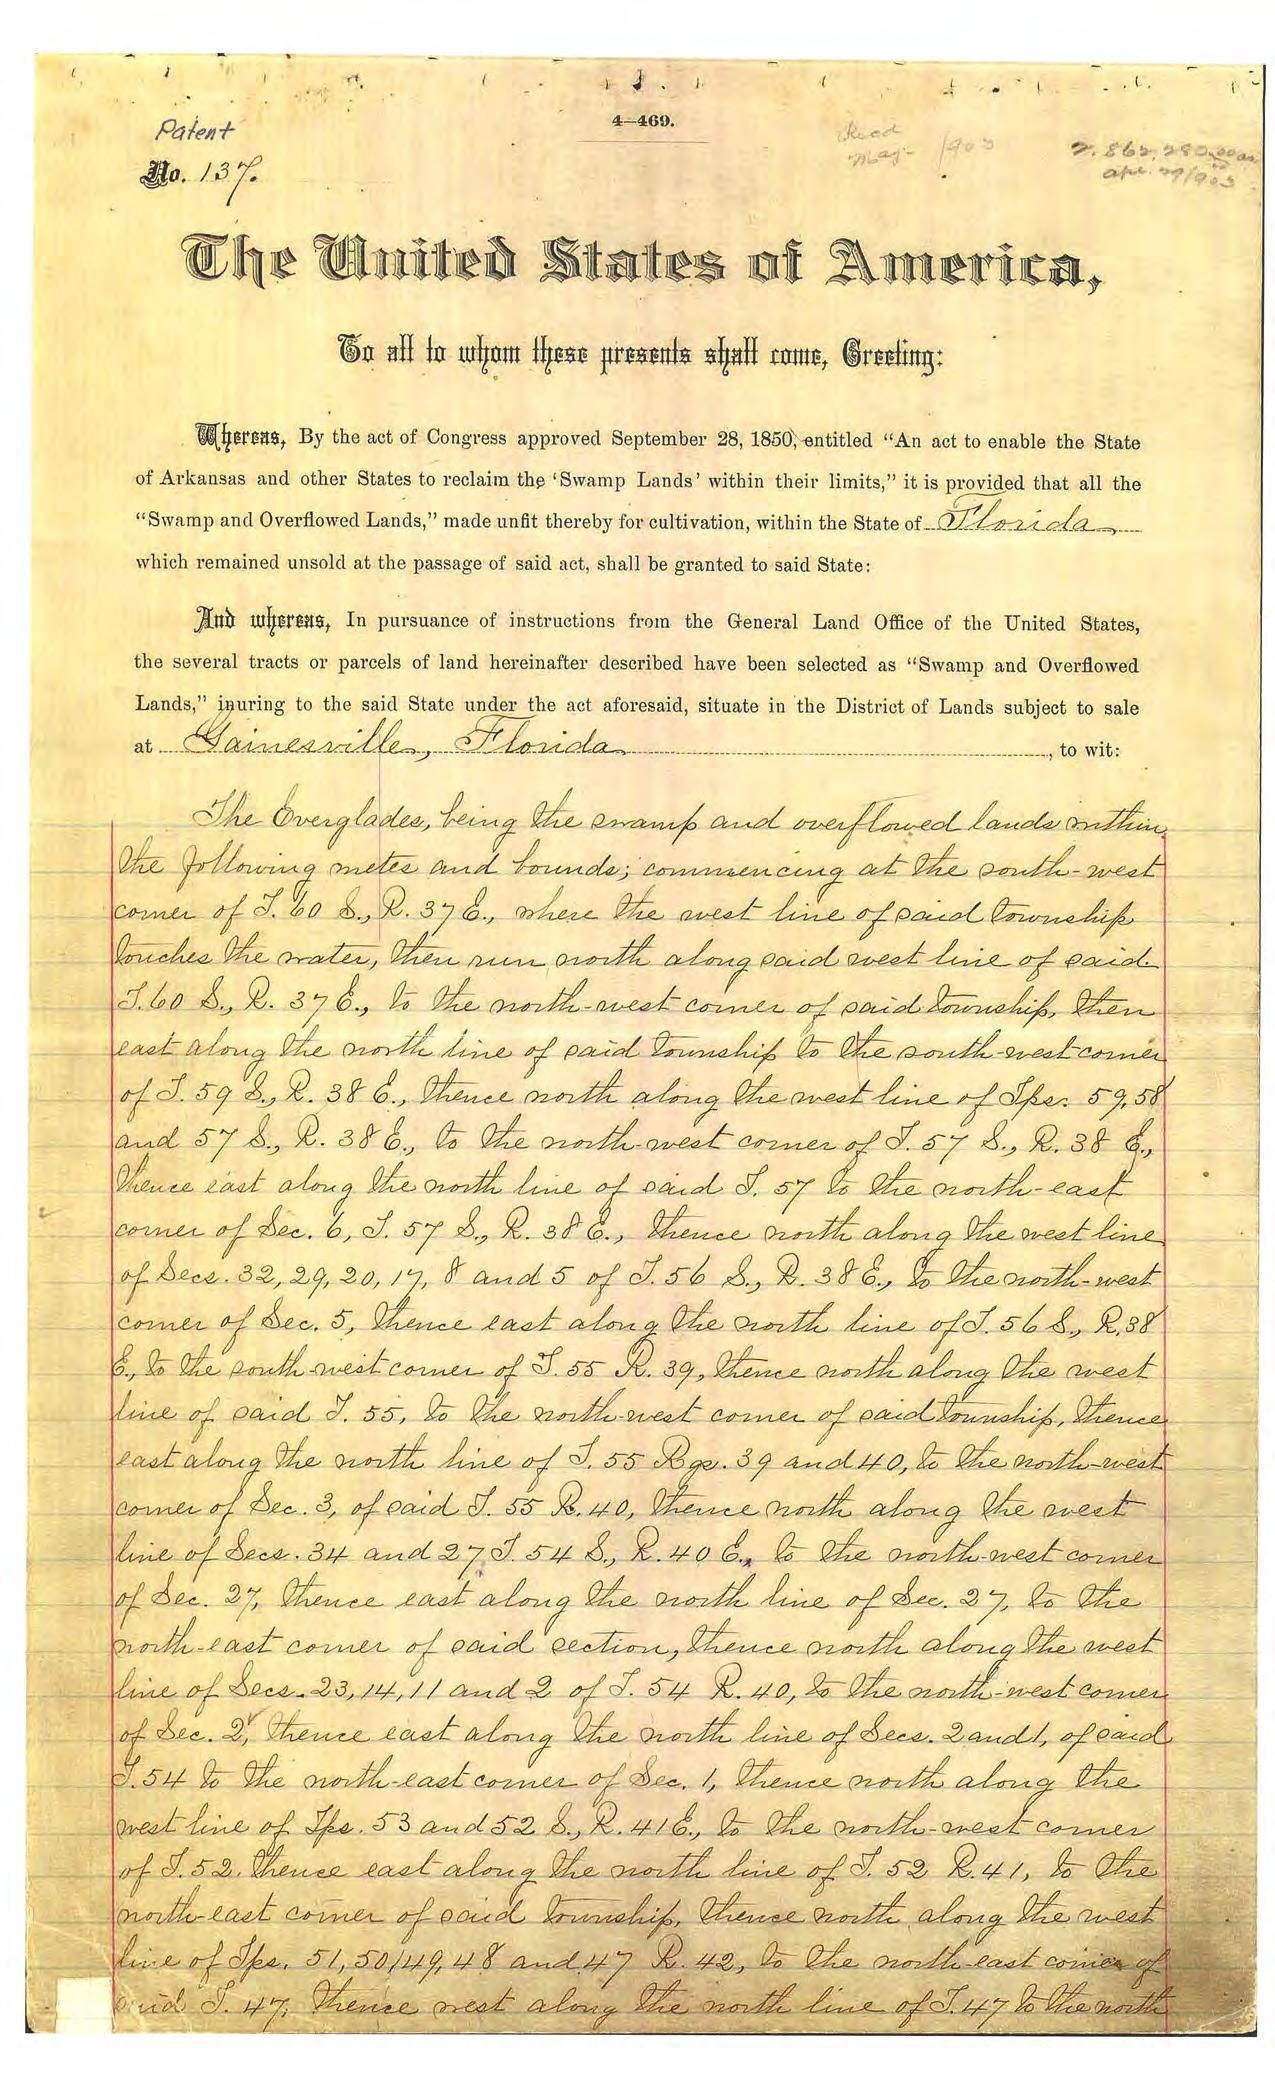 Patent
4—469.
Read
May 1903
No. 137.
2,862,280
apr. 29/1903
The United States of America,
To all to whom these presents shall come, Greeting:
Whereas, By the act of Congress approved September 28, 1850, entitled “An act to enable the State
of Arkansas and other States to reclaim the ‘Swamp Lands’ within their limits,” it is provided that all the
“Swamp and Overflowed Lands,” made unfit thereby for cultivation, within the State of Florida,
which remained unsold at the passage of said act, shall be granted to said State:
And whereas, In pursuance of instructions from the General Land Office of the United States,
the several tracts or parcels of land hereinafter described have been selected as “Swamp and Overflowed
Lands,” inuring to the said State under the act aforesaid, situate in the District of Lands subject to sale
at Gainesville, Florida, to wit:
The Everglades, being the swamp and overflowed lands within
the following metes and bounds; commencing at the south-west
corner of T. 60 S., R. 37 E., where the west line of said township
touches the water, then run north along said west line of said
T. 60 S., R. 37 E., to the north-west corner of said township, then
east along the north line of said township to the south-west corner
of T. 59 S., R. 38 E., thence north along the west line of Tps. 59, 58
and 57 S., R. 38 E., to the north-west corner of T. 57 S., R. 38 E.,
thence east along the north line of said T. 57 to the north-east
corner of Sec. 6, T. 57 S., R. 38 E., thence north along the west line
of Secs. 32, 29, 20, 17, 8 and 5 of T. 56 S., R. 38 E., to the north-west
corner of Sec. 5, thence east along the north line of T. 56 S., R. 38
E., to the south-west corner of T. 55 R. 39, thence north along the west
line of said T. 55, to the north-west corner of said township, thence
east along the north line of T. 55 Rgs. 39 and 40, to the north-west
corner of Sec. 3, of said T. 55 R. 40, thence north along the west
line of Secs. 34 and 27, T. 54 S., R. 40 E., to the north-west corner
of Sec. 27, thence east along the north line of Sec. 27, to the
north-east corner of said section, thence north along the west
line of Secs. 23, 14, 11 and 2 of T. 54 R. 40, to the north-west corner
of Sec. 2, thence east along the north line of Secs. 2 and 1, of said
T. 54 to the north-east corner of Sec. 1, thence north along the
west line of Tps. 53 and 52 S., R. 41 E., to the north-west corner
of T. 52, thence east along the north line of T. 52 R. 41, to the
north-east corner of said township, thence north along the west
line of Tps. 51, 50, 49, 48 and 47 R. 42, to the north-east corner of
said T. 47, thence west along the north line of T. 47 to the north